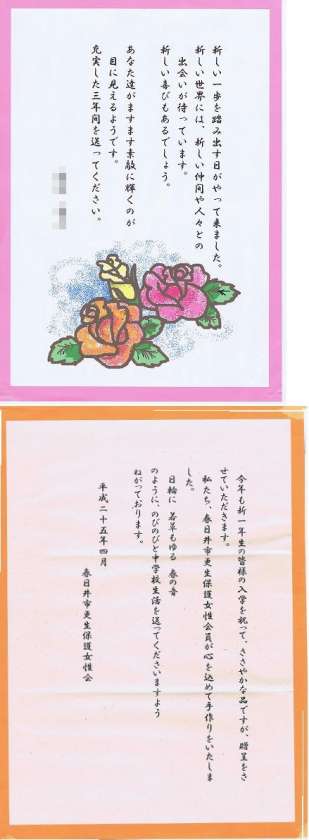 新しい一歩を踏み出す日がやって来ました。
新しい世界には、新しい仲間や人々との
出会いが待っています。
新しい喜びもあるでしょう。
あなた達がますます素敵に輝くのが
目に見えるようです。
充実した三年間を送ってください。
今年も新一年生の皆様の入学を祝って、ささやかな品ですが、贈呈をさ
せていただきます。
私たち、春日井市更生保護女性会員が心を込めて手作りをいたしま
した。
日輪に 若草もゆる 春の音
のように、のびのびと中学校生活を送ってくださいますよう
ねがっております。
平成二十五年四月
春日井市更生保護女性会